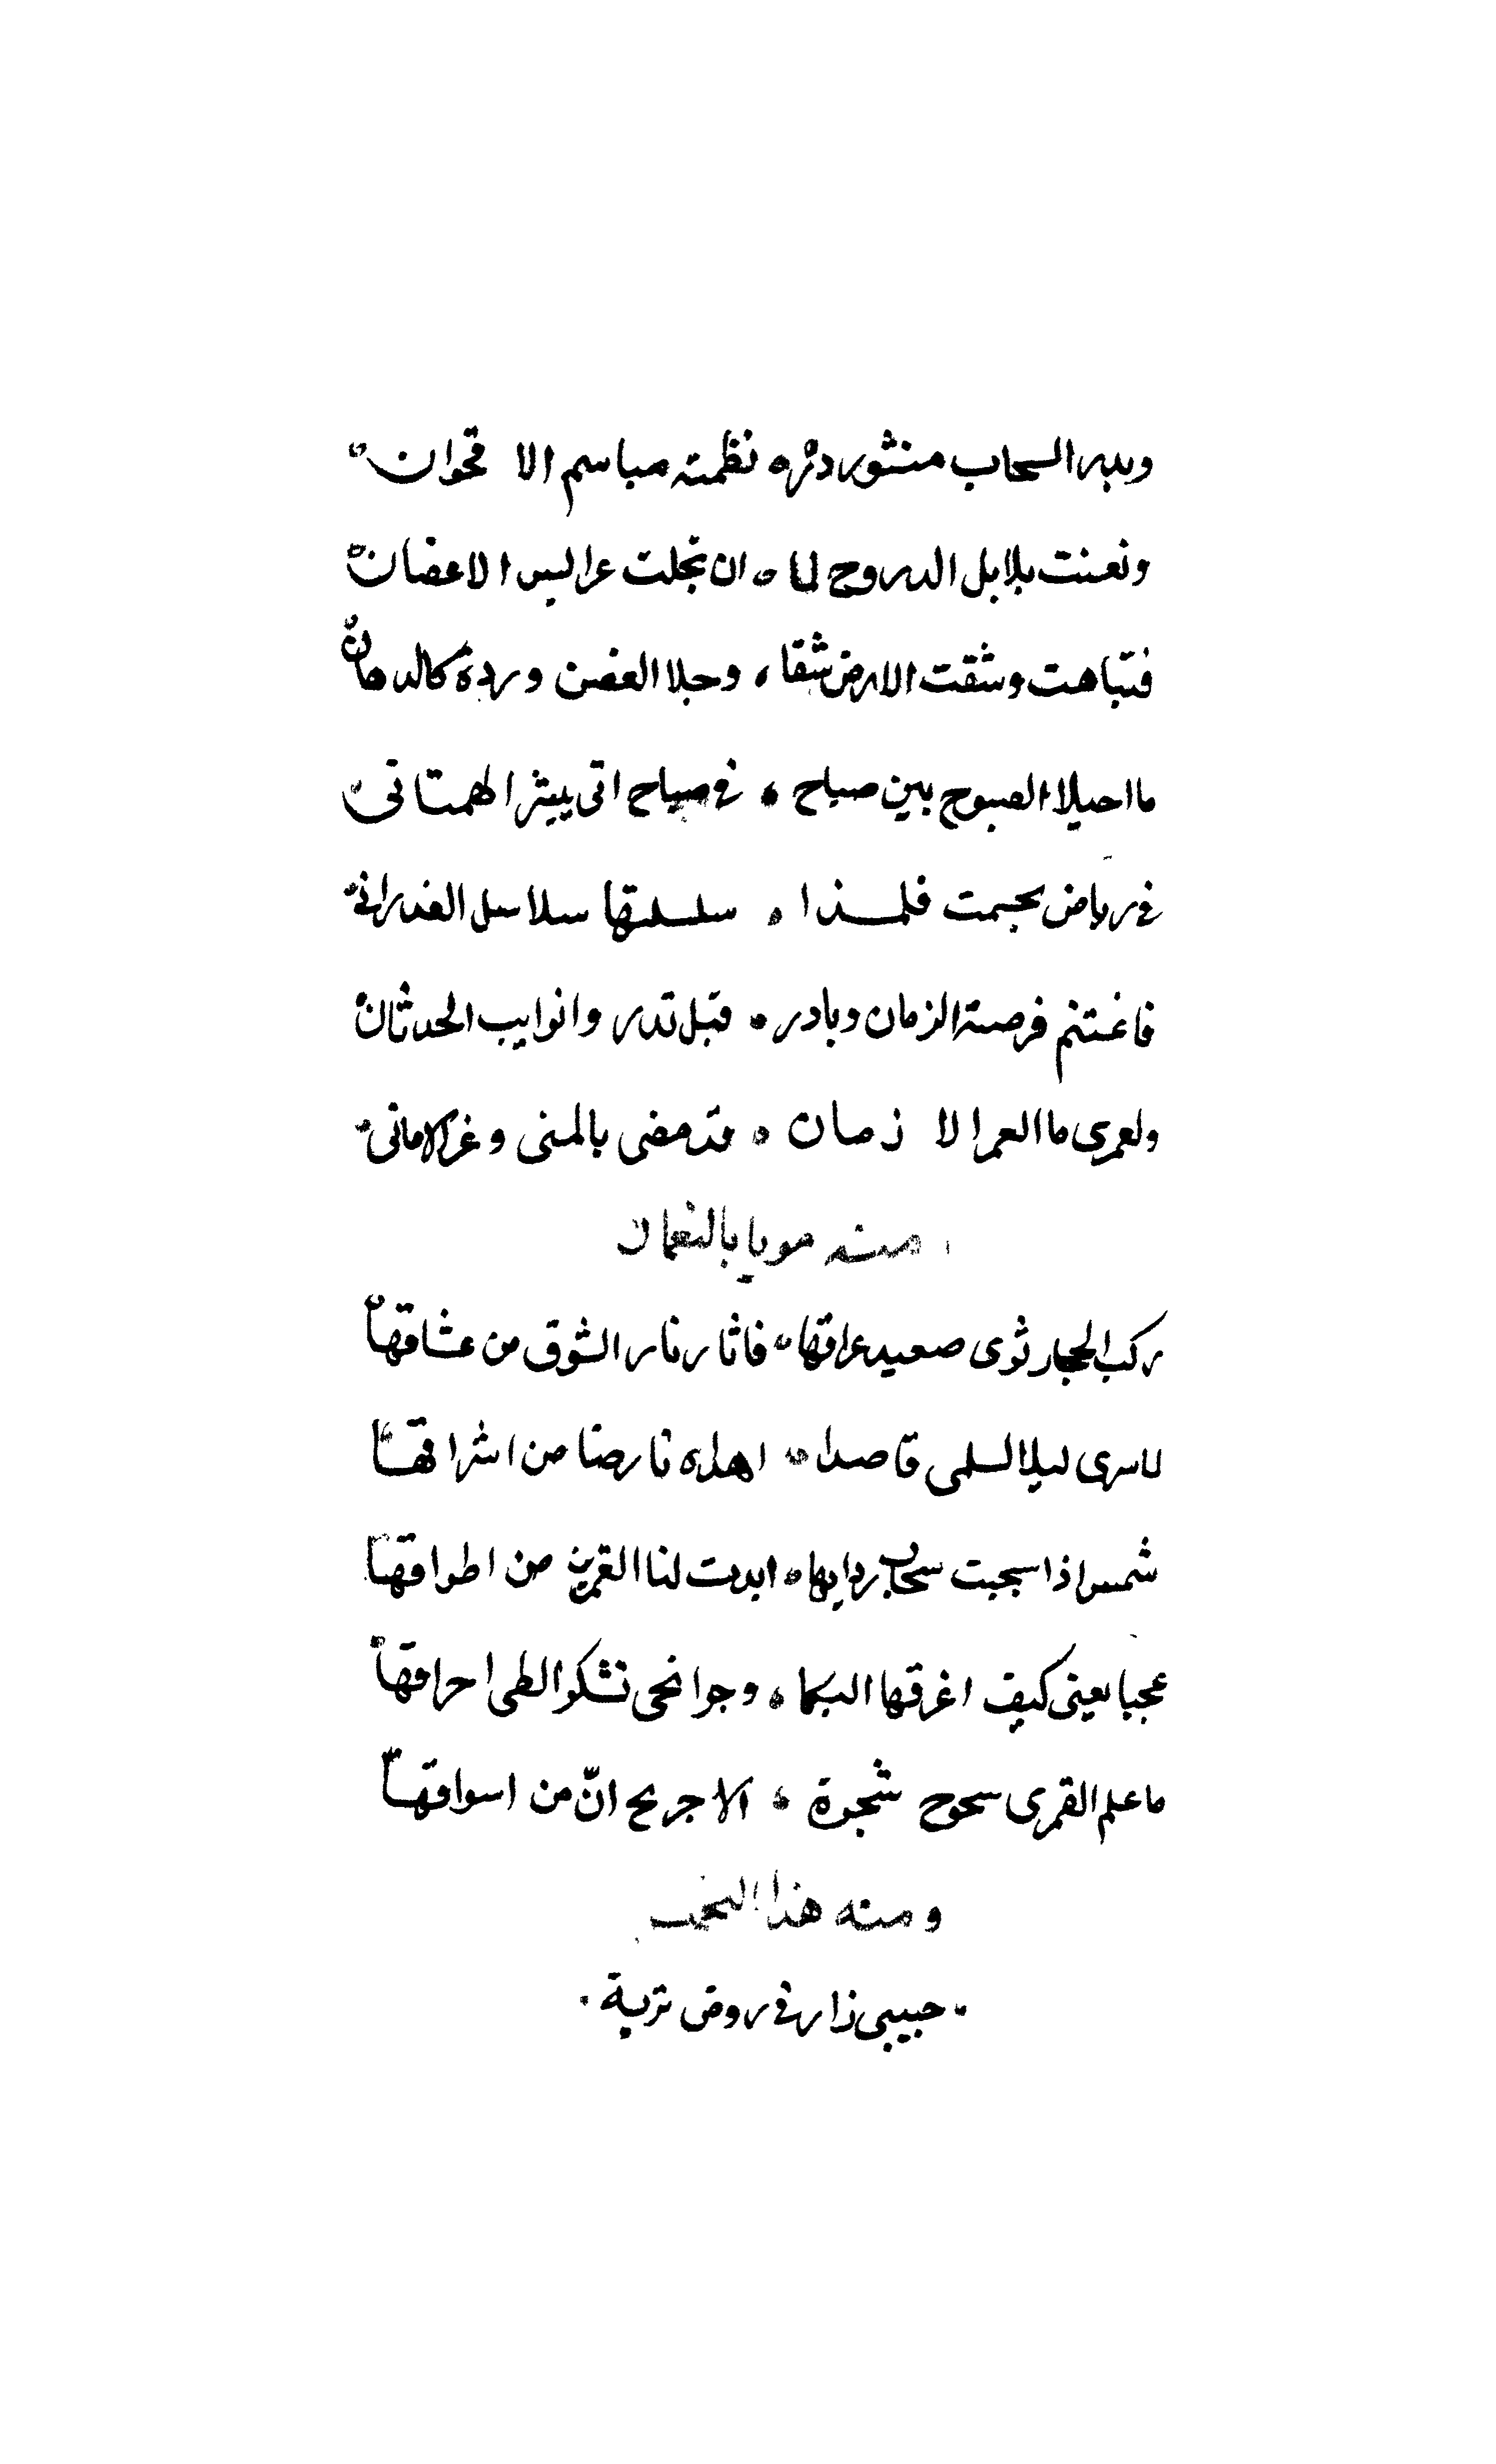 السحاب منثور دره نظمته مباسم الا قحوان
وتغنت بلابل الدروح لما ان تجلت عرايس الاغصان
فتباهت وشقت الارض شقا وجلا الغصن وردة كالدهان
ما احيلا الصبوح بين صباح في صياح اتى يبيثر الهمتانى
في رياض تجسمت فلذا سلسلتها سلاسل الغدران
فاغتنم فرصة الزمان وبادر قبل تدر وانوايب الحدثان
ولعمرى ما العمر الا زمان قد مضى بالمنى وغر الامانى
منه بالنعمان
ركب الحجاز ثوى صعيد عراقها فاثار نار الشوق من عشاقها
لاسرى ليلا لسلمى قاصدا اهداه نارضا من اشراقها
شمس اذا سحبت سحاب ردايها ابدت لنا القمرين من اطواقها
عجبا لعينى كيف اغرقها البكا وجوانحى تشكوا لظى احراقها
ما علم القمرى سحوح شجوة الا جريح انّ من اسواقها
ومنه هذا
حبيبى زار في روض تربة